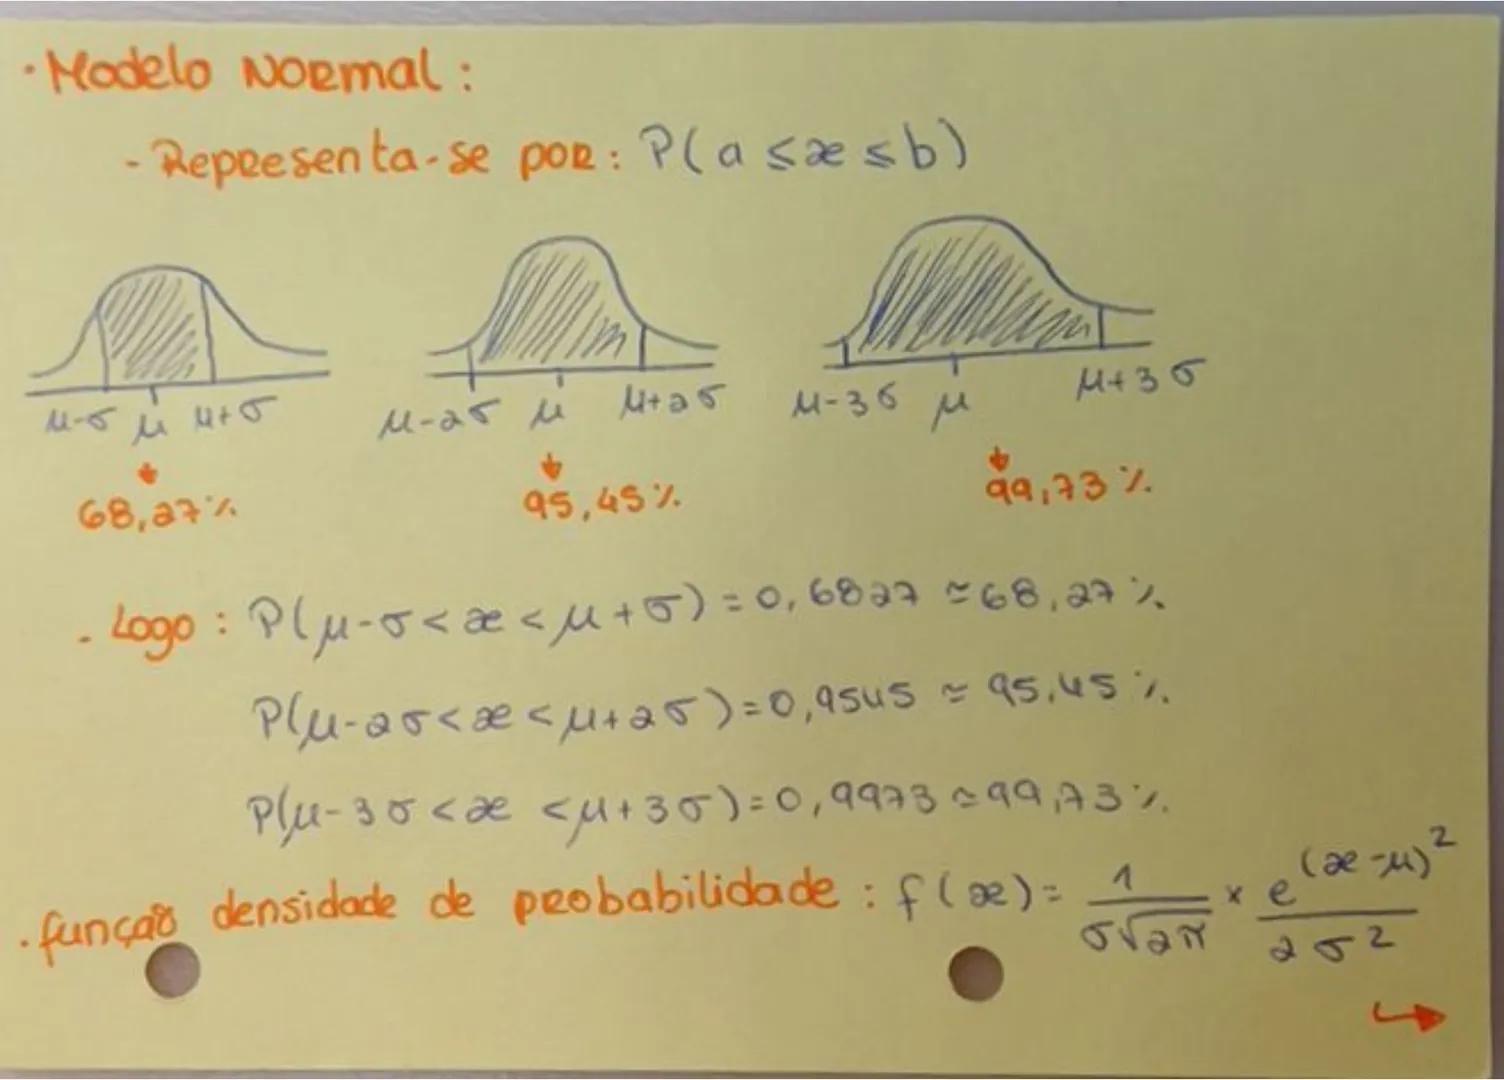 · Modelo Normal:
- Representa-se por: P(a ≤ x ≤ b)
μ-σ μ μ+σ μ-2σ μ μ+2σ μ-3σ μ μ+3σ
68,27% 95,45% 99,73%
. Logo: P(μ-σ < x < μ+σ) = 0,6827 ≃ 68,27%
P(μ-2σ < x < μ+2σ) = 0,9545 ≃ 95,45%
P(μ-3σ < x < μ+3σ) = 0,9973 ≃ 99,73%
. função densidade de probabilidade: f(x) = 1/(σ√2π) × e^(x-μ)²/2σ²